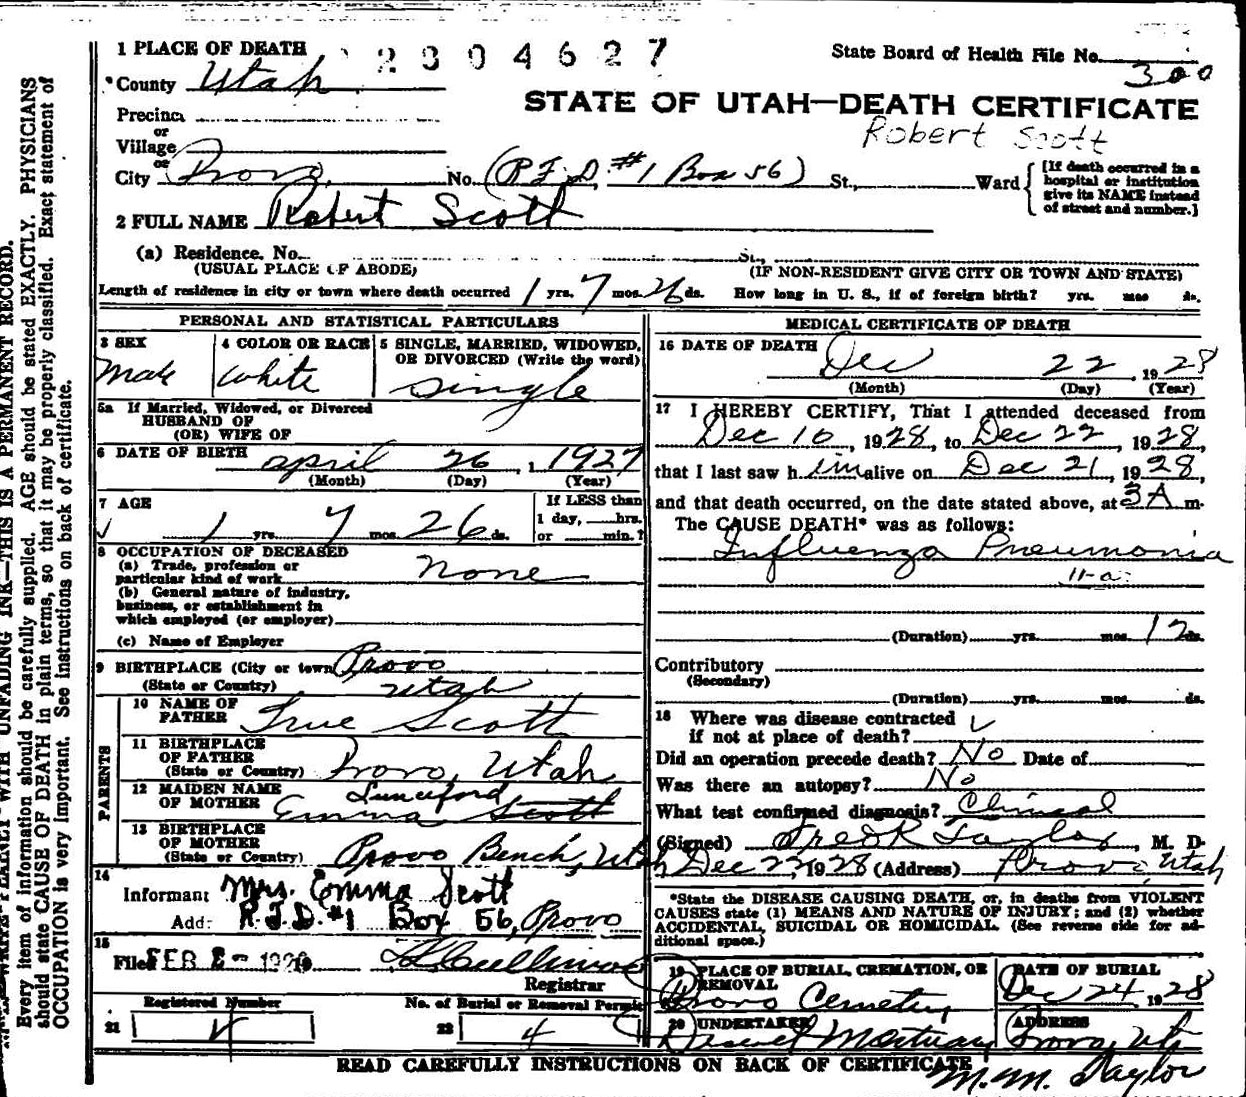 1 PLACE OF DEATH 2304627 State Board of Health File No. 300
County Utah
STATE OF UTAH—DEATH CERTIFICATE
Precinct
or
Robert Scott
Village
or
City Provo, No. (R.F.D. #1 Box 56) St., Ward [If death occurred in a hospital or institution give its NAME instead of street and number.]
2 FULL NAME Robert Scott
(a) Residence. No. St.,
(USUAL PLACE OF ABODE) (IF NON-RESIDENT GIVE CITY OR TOWN AND STATE)
Length of residence in city or town where death occurred 1 yrs. 7 mos. 26 ds. How long in U. S., if of foreign birth? yrs. mos ds.
PERSONAL AND STATISTICAL PARTICULARS
3 SEX 4 COLOR OR RACE 5 SINGLE, MARRIED, WIDOWED,
OR DIVORCED (Write the word)
Male white single
5a If Married, Widowed, or Divorced
HUSBAND OF
(OR) WIFE OF
6 DATE OF BIRTH april 26, 1927
(Month) (Day) (Year)
7 AGE If LESS than
1 yrs. 7 mos. 26 ds. 1 day, hrs.
or min.?
8 OCCUPATION OF DECEASED
(a) Trade, profession or
particular kind of work none
(b) General nature of industry,
business, or establishment in
which employed (or employer)
(c) Name of Employer
9 BIRTHPLACE (City or town) Provo
(State or Country) Utah
PARENTS
10 NAME OF
FATHER True Scott
11 BIRTHPLACE
OF FATHER
(State or Country) Provo, Utah
12 MAIDEN NAME Lunceford
OF MOTHER Emma Scott
13 BIRTHPLACE
OF MOTHER
(State or Country) Provo Bench, Utah
14
Informant Mrs. Emma Scott
Add R.F.D. #1 Box 56, Provo
15
Filed FEB 19
Registrar
Registered Number No. of Burial or Removal Permit
21 4 22 4
MEDICAL CERTIFICATE OF DEATH
16 DATE OF DEATH Dec 22, 1928
(Month) (Day) (Year)
17 I HEREBY CERTIFY, That I attended deceased from
Dec 10, 1928, to Dec 22, 1928,
that I last saw him alive on Dec 21, 1928,
and that death occurred, on the date stated above, at 3A m.
The CAUSE DEATH* was as follows:
Influenza Pneumonia
11-a
(Duration) yrs. mos. 12 ds.
Contributory
(Secondary)
(Duration) yrs. mos. ds.
18 Where was disease contracted
if not at place of death?
Did an operation precede death? No Date of
Was there an autopsy? No
What test confirmed diagnosis? Clinical
(Signed) Fred R Taylor, M. D.
Dec 22, 1928 (Address) Provo, Utah
*State the DISEASE CAUSING DEATH, or, in deaths from VIOLENT
CAUSES state (1) MEANS AND NATURE OF INJURY; and (2) whether
ACCIDENTAL, SUICIDAL OR HOMICIDAL. (See reverse side for ad-
ditional space.)
19 PLACE OF BURIAL, CREMATION, OR REMOVAL DATE OF BURIAL
Provo Cemetery Dec 24 1928
20 UNDERTAKER ADDRESS
Mortuary Provo, Ut
READ CAREFULLY INSTRUCTIONS ON BACK OF CERTIFICATE
M. M. Taylor
WRITE PLAINLY WITH UNFADING INK—THIS IS A PERMANENT RECORD.
Every item of information should be carefully supplied. AGE should be stated EXACTLY. PHYSICIANS
should state CAUSE OF DEATH in plain terms, so that it may be properly classified. Exact statement of
OCCUPATION is very important. See instructions on back of certificate.